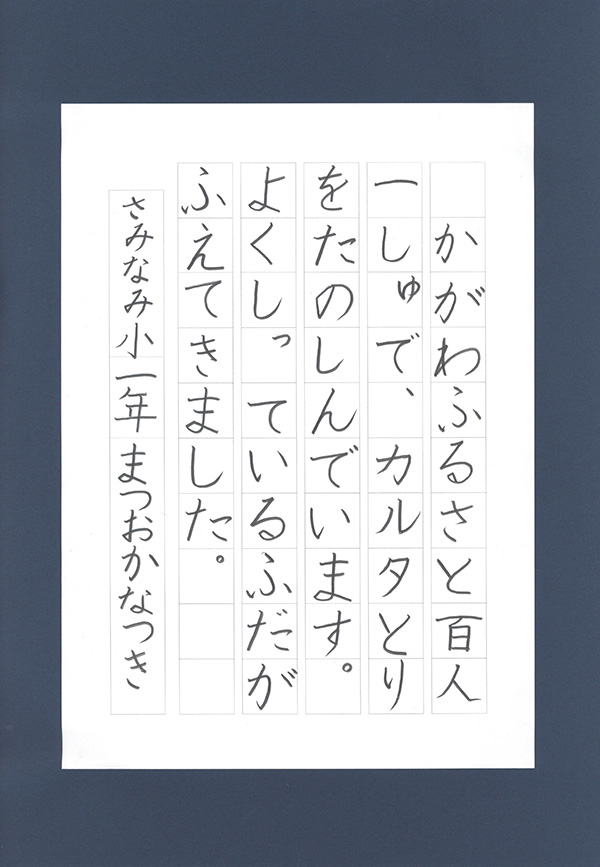 かがわふるさと百人
一しゅで、カルタとり
をたのしんでいます。
よくしっているふだが
ふえてきました。
さみなみ小一年まつおかなつき